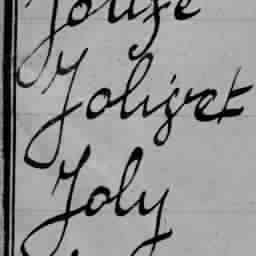 Jolivet
Joly